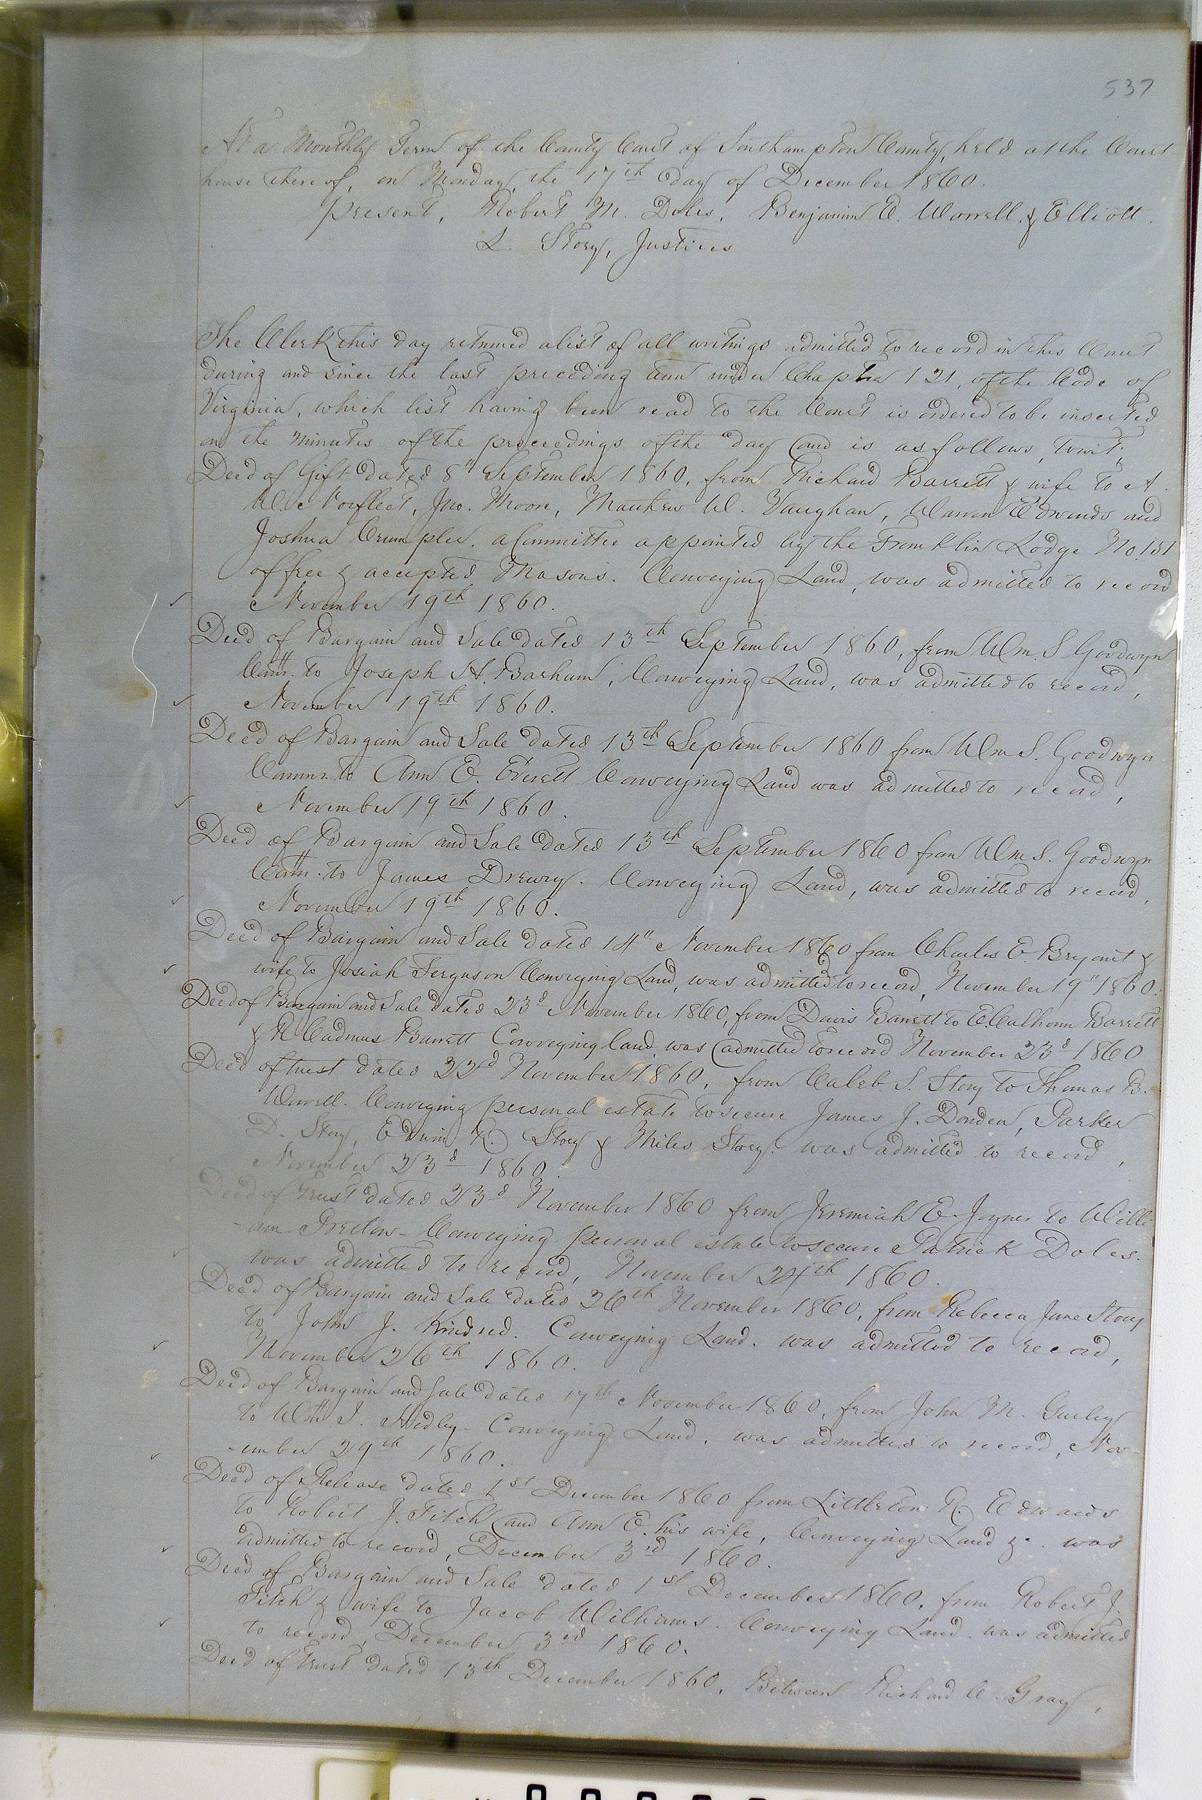 537
At a Monthly Term of the County Court of Southampton County, held at the Court
house thereof, on Monday, the 17th day of December 1860.
Present, Robert M. Doles, Benjamin C. Worrell & Elliott
L. Story, Justices
The Clerk this day returned a list of all writings admitted to record in this Court
during and since the last preceding term under Chapter 121, of the Code of
Virginia, which list having been read to the Court is ordered to be inserted
on the minutes of the proceedings of the day and is as follows, towit;
Deed of Gift dated 8" September 1860, from Richard Barrett & wife to A.
Norfleet, Jno. Moore, Matthew W. Vaughan, Warren Edwards and
Joshua Crumpler, a Committee appointed by the Franklin Lodge No. 151
of free & accepted Masons. Conveying Land, was admitted to record
November 19th 1860.
Deed of Bargain and Sale dated 13th September 1860, from Wm. S Goodwyn
to Joseph H. Barham, Conveying Land, was admitted to record,
November 19th 1860.
Deed of Bargain and Sale dated 13th September 1860 from Wm S. Goodwyn
Commr. to Ann E. Everett Conveying Land was admitted to record,
November 19th 1860.
Deed of Bargain and Sale dated 13th September 1860 from Wm S. Goodwyn
to James Drewry. Conveying Land, was admitted to record,
November 19th 1860.
Deed of Bargain and Sale dated 14" November 1860 from Charles E Bryant &
wife to Josiah Ferguson Conveying Land, was admitted to record, November 19" 1860.
Deed of Bargain and Sale dated 23d November 1860, from Davis Barrett to E Calhoun Barrett
& R Cadmus Barrett Conveying land, was admitted to record November 23d 1860
Deed of trust dated 22d November 1860, from Caleb S. Story to Thomas B.
Worrell. Conveying personal estate to secure James J. Darden, Parker
D. Story, Edwin R. Story & Miles Story. was admitted to record,
November 23d 1860.
Deed of Trust dated 23d November 1860 from Jeremiah E. Joyner to Willi-
-am Preston - Conveying personal estate to secure Patrick Doles.
was admitted to record, November 24th 1860.
Deed of Bargain and Sale dated 26th November 1860, from Rebecca Jane Story
to John J. Kindred. Conveying Land. was admitted to record,
November 26th 1860.
Deed of Bargain and Sale dated 17th November 1860, from John M. Gurley
to Conveying Land, was admitted to record, Nov-
-ember 29th 1860.
Deed of Release dated 1st December 1860 from Littleton R. Edwards
to Robert J. Fitch and Ann E. his wife, Conveying Land &c. was
admitted to record, December 3rd 1860.
Deed of Bargain and Sale dated 1st December 1860, from Robert J.
Fitch & wife to Jacob Williams. Conveying Land. was admitted
to record, December 3rd 1860.
Deed of trust dated 13th December 1860, Between Richard C. Gray,